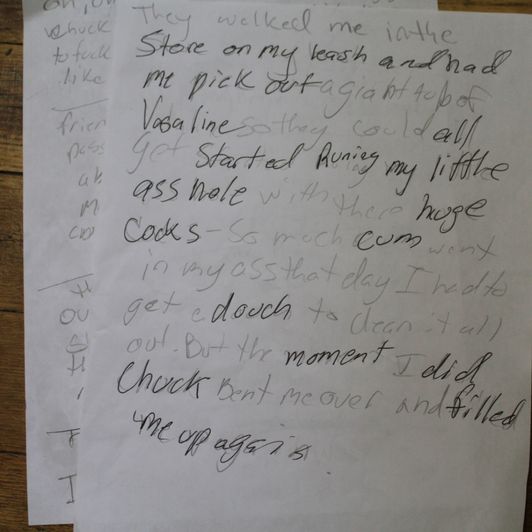 Chuck
to fuck
like
They walked me in the
Store on my leash and had
me pick out a giant tub of
Vasaline so they could all
get Started Runing my little
ass hole with there huge
Cocks - So much cum went
in my ass that day I had to
get a douch to clean it all
out. But the moment I did
Chuck Bent me over and filled
me up again.